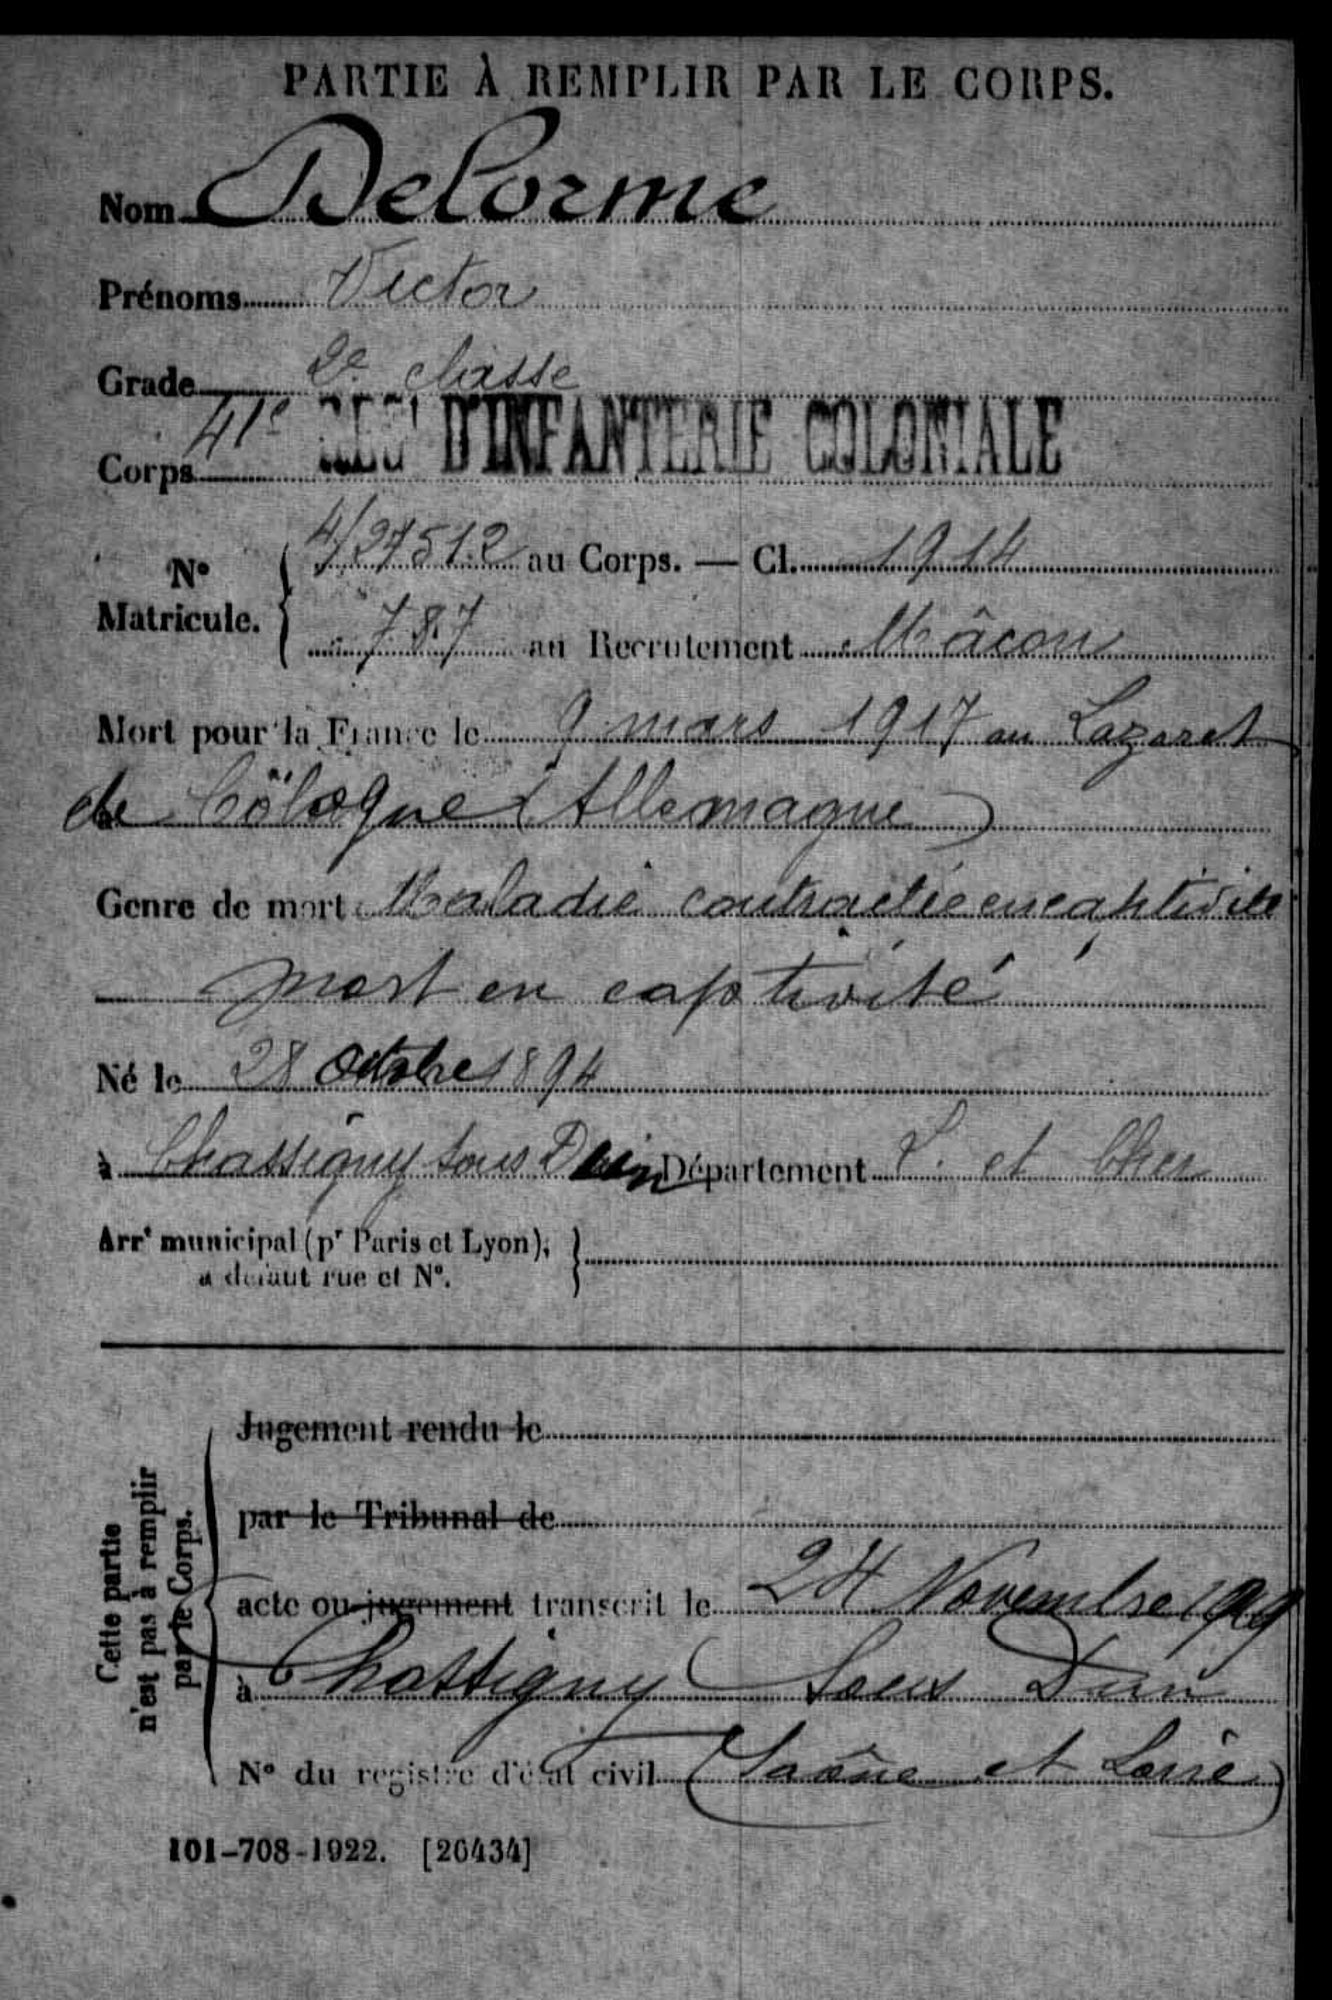 PARTIE À REMPLIR PAR LE CORPS.
Nom Delorme
Prénoms Victor
Grade 2e classe
Corps 41e RÉGt D'INFANTERIE COLONIALE
N° Matricule. { 4/27512 au Corps. — Cl. 1914
787 au Recrutement Mâcon
Mort pour la France le 9 mars 1917 au Lazaret
de Cöloque (Allemagne)
Genre de mort Maladie contractée en captivité
mort en captivité
Né le 28 Octobre 1894
à Chassigny sous Dun Département S. et Cher
Arrt municipal (pr Paris et Lyon), }
à défaut rue et N°.
Cette partie n'est pas à remplir par le Corps.
Jugement rendu le
par le Tribunal de
acte ou jugement transcrit le 24 Novembre 1919
à Chassigny sous Dun
N° du registre d'état civil (Saône et Loire)
101-708-1922. [26434]